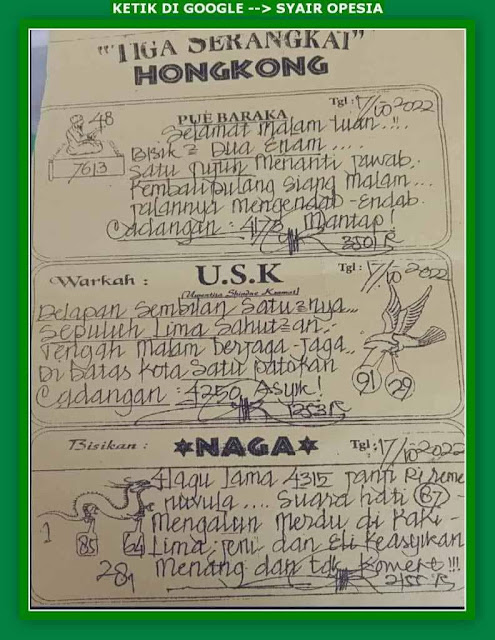 KETIK DI GOOGLE --> SYAIR OPESIA
"TIGA SERANGKAI"
HONGKONG
PUE BARAKA
Tgl : 17/10 2022
48
7613
Selamat malam tuan..!!
Bisik2 Dua Enam ....
Satu Tujuh Menanti jawab..
Kembali pulang siang malam...
Jalannya mengendap-Endab.
Cadangan : 4173 Mantap!
Warkah :
U.S.K
Tgl : 17/10 2022
Delapan Sembilan Satu2nya...
Sepuluh Lima Sahut2an..
Tengah malam berjaga-jaga..
Di batas kota Satu patokan
Cadangan : 4250 Asyik!
91
29
Bisikan :
NAGA
Tgl : 17/10 2022
4 lagu lama 4315
.... Suara hati 67 -
Mengalun Merdu di Kaki -
Lima, jeni dan Eli Keasyikan
Menang dan tdk Komere !!!
1
85
64
281